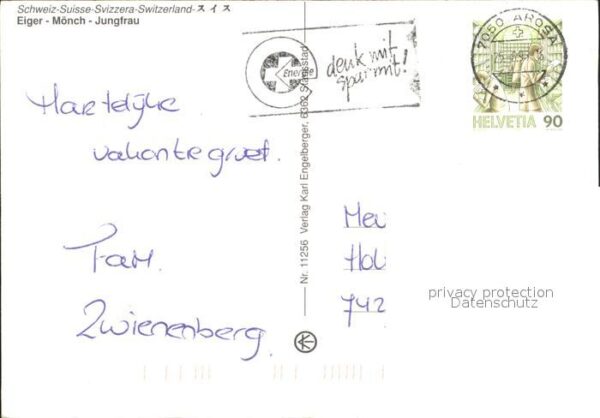 Schweiz-Suisse-Svizzera-Switzerland-スイス
Eiger - Mönch - Jungfrau
Energie
denk mit
spar mit!
7050 AROSA
HELVETIA 90
Hartelijke
vakantiegroet.
Fam.
Zwienenberg.
Nr. 11256 Verlag Karl Engelberger, 6362 Stansstad
742
privacy protection
Datenschutz